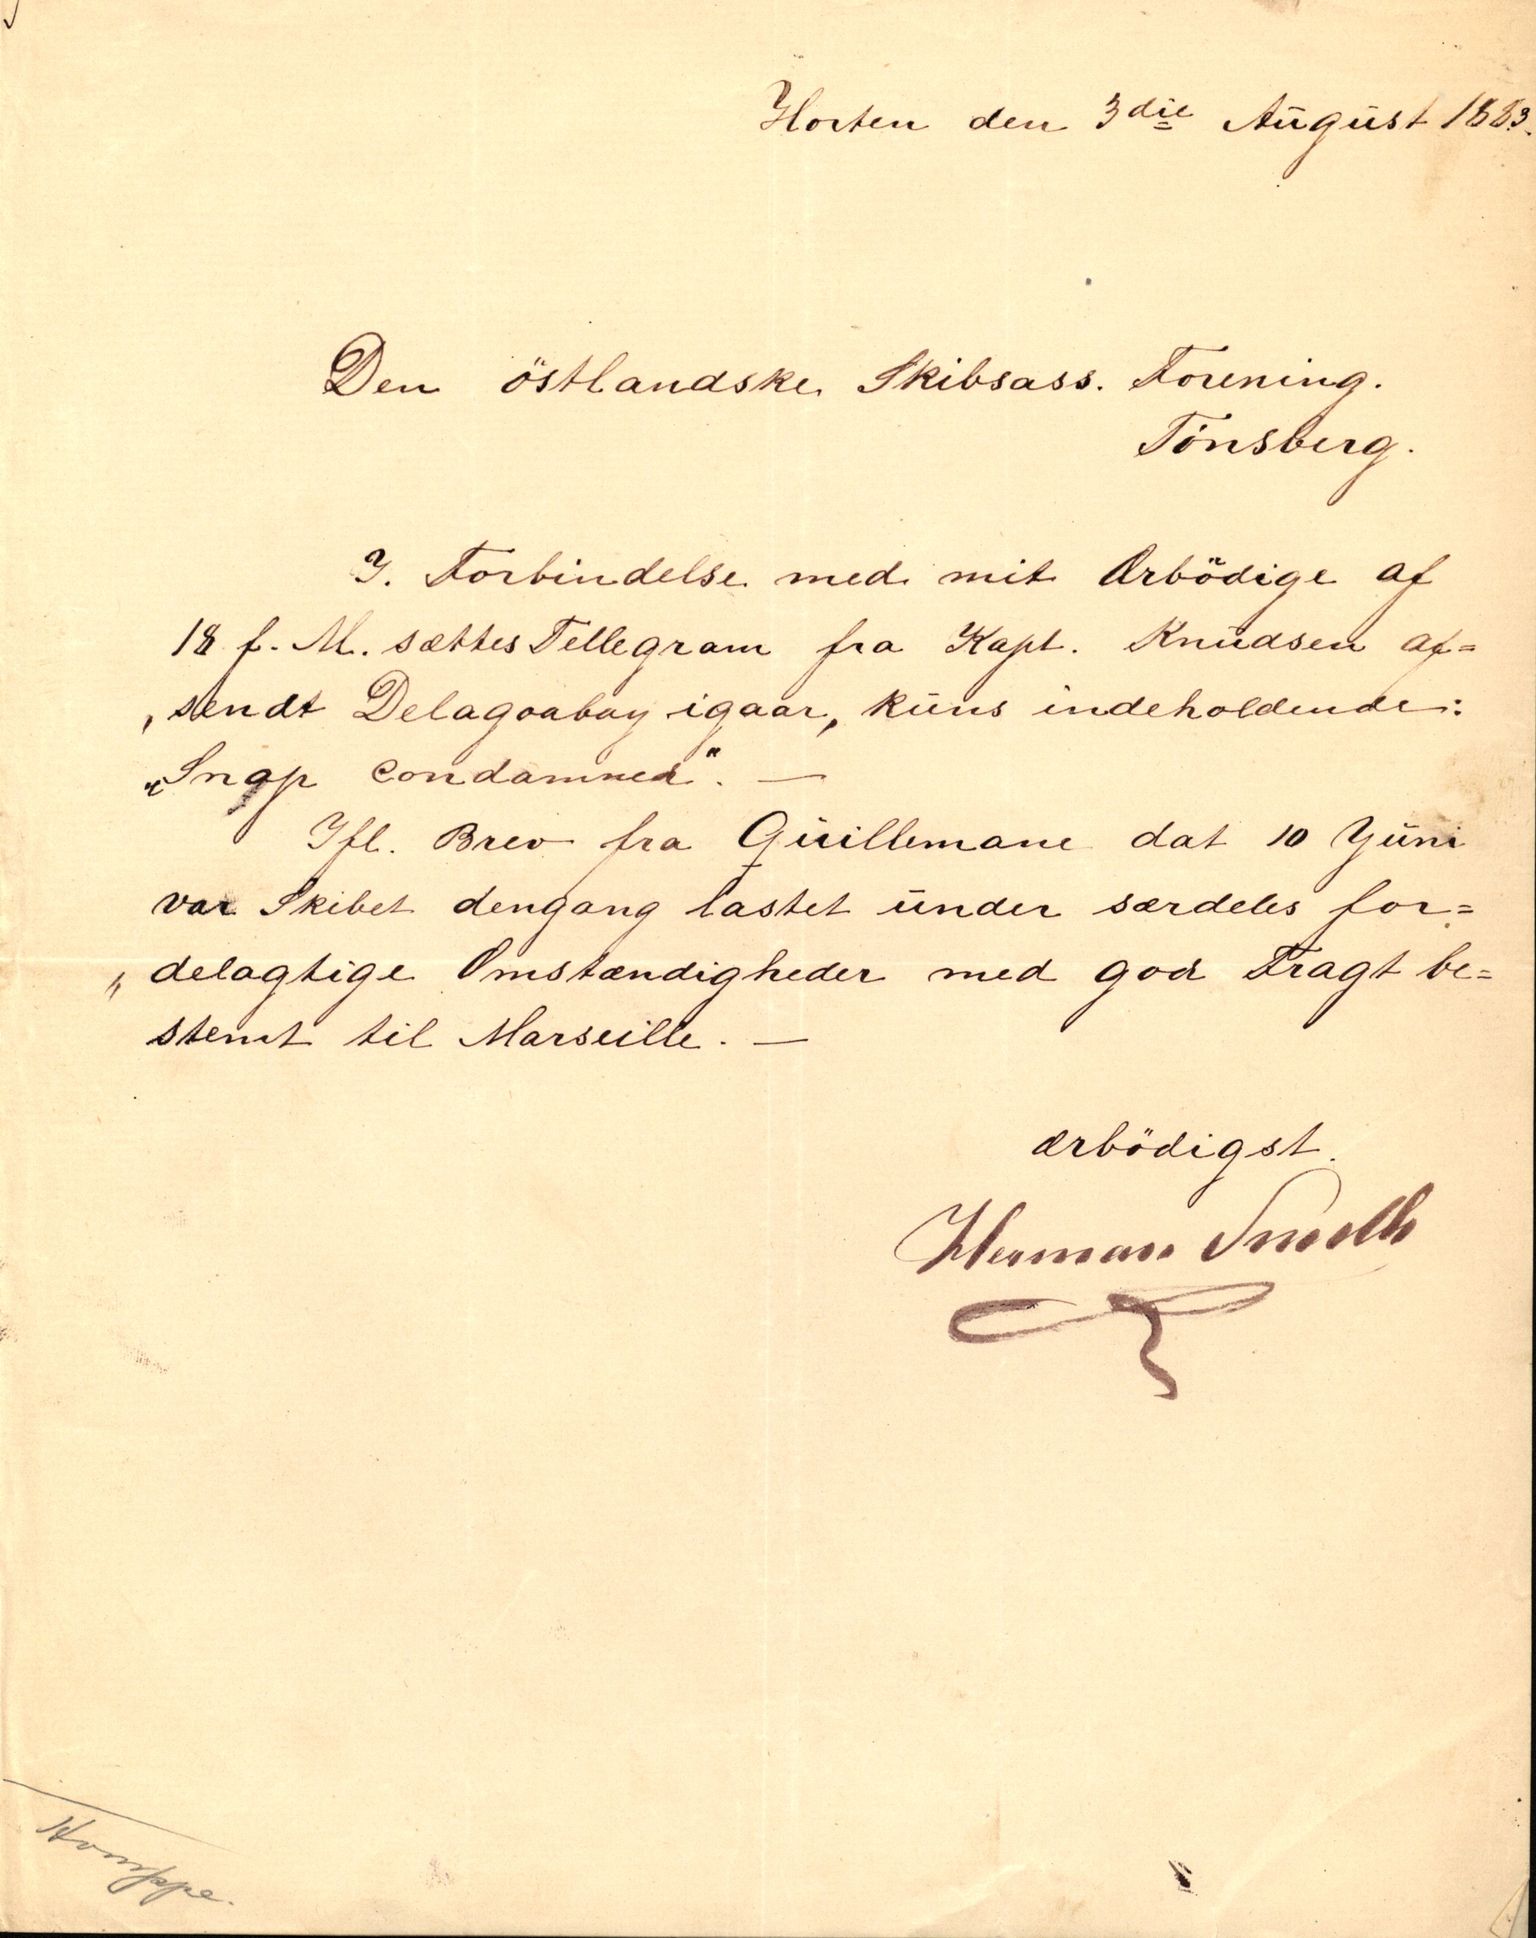 Horten den 3die August 1883.
Den östlandske Skibsass. Forening.
Tönsberg.
I. Forbindelse med mit Ærbödige af
18 f. M. sættes Tellegram fra Kapt. Knudsen af=
sendt Delagoabay igaar, kuns indeholdende:
„Snap condamned". —
Ifl. Brev fra Quillemane dat 10 Juni
var Skibet dengang lastet under særdeles for=
„ delagtige Omstændigheder med god Fragt be=
stemt til Marseille. —
ærbödigst.
Herman Smith